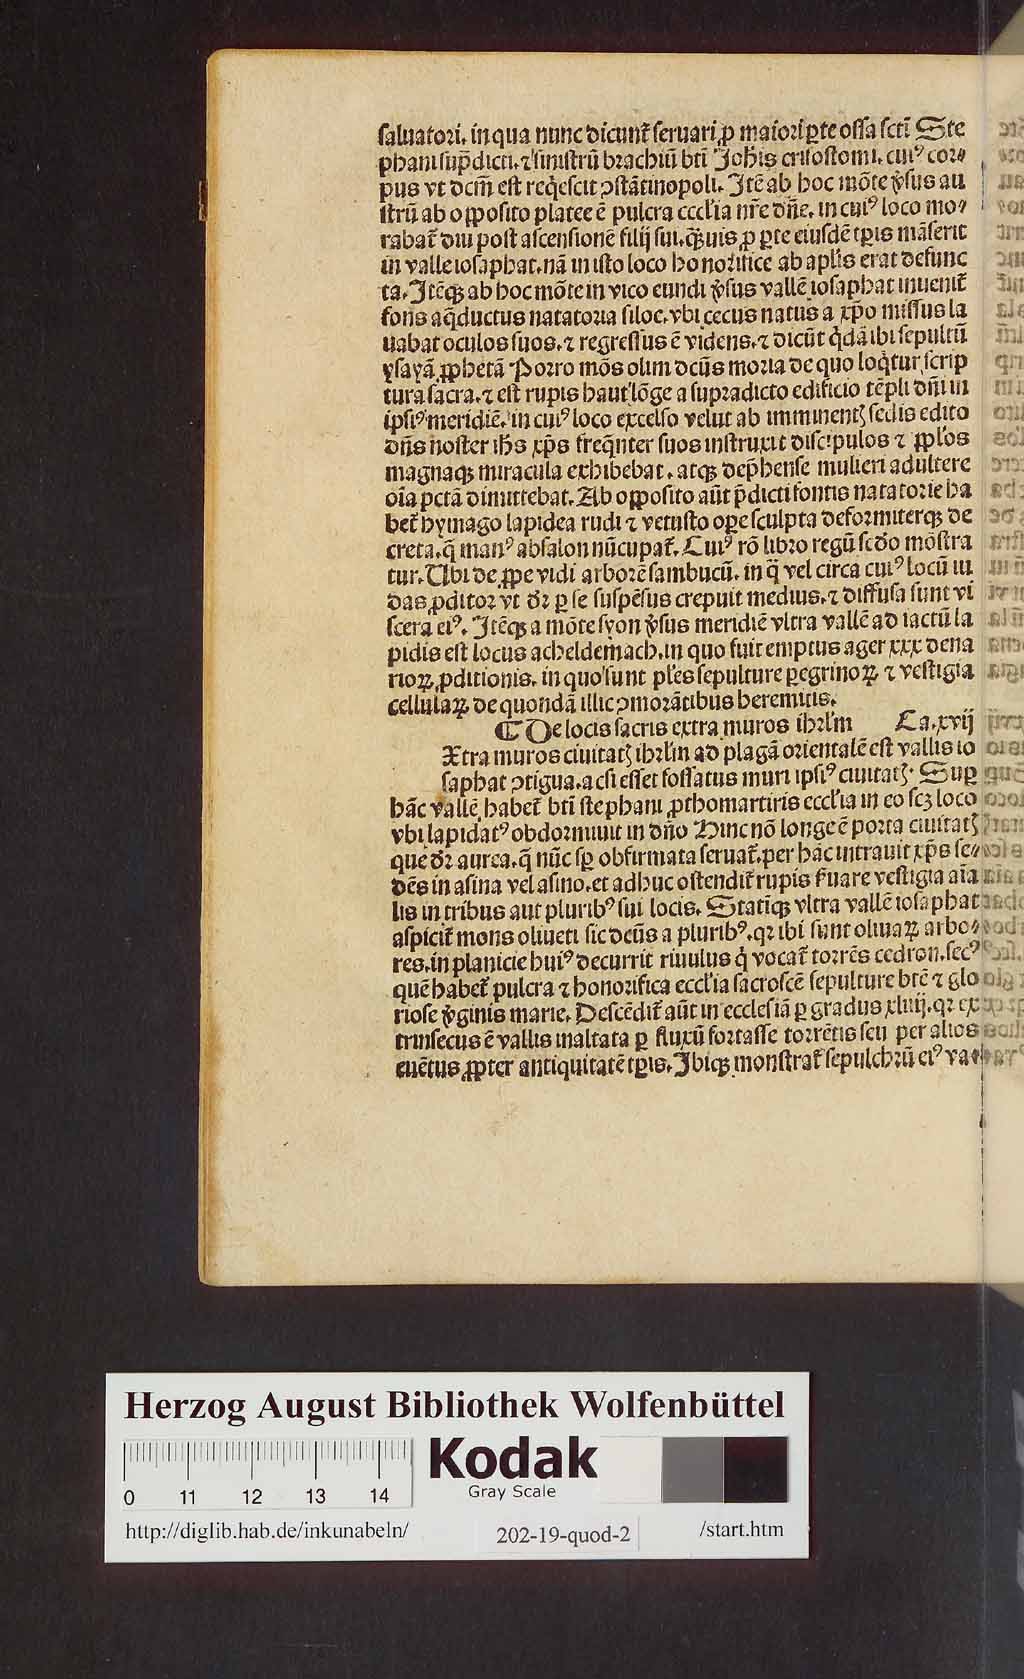 ſaluatori. in qua nunc dicunt᷑ ſeruari ꝓ maiori ꝑte oſſa ſcti Ste
phani ſup̄dicti. ⁊ ſiniſtrū brachiū bti Joh̄is criſoſtomi. cuiꝰ cor⸗
pus vt dcm̄ eſt req̇eſcit ↄſtātinopoli. Jtē ab hoc mōte ṽſus au
ſtrū ab oppoſito platee ē pulcra eccl'ia nr̄e dn̄e. in cuiꝰ loco mo⸗
rabat᷑ diu poſt aſcenſionē filij ſui. q̄uis ꝓ ꝑte eiuſdē tp̄is māſerit
in valle ioſaphat. nā in iſto loco honorifice ab apl'is erat defunc
ta. Jtēqꝫ ab hoc mōte in vico eundi ṽſus vallē ioſaphat inuenit᷑
fons aq̄ductus natatoria ſiloe. vbi cecus natus a xp̄o miſſus la
uabat oculos ſuos. ⁊ regreſſus ē videns. ⁊ dicūt q̇dā ibi ſepultū
yſayā ꝓphetā Porro mōs olim dcūs moria de quo loq̇tur ſcrip
tura ſacra. ⁊ eſt rupis haut lōge a ſupradicto edificio tēpli dn̄i in
ipſiꝰ meridiē. in cuiꝰ loco excelſo velut ab imminentꝫ ſedis edito
dn̄s noſter ih̄s xp̄s freq̄nter ſuos inſtruxit diſcipulos ⁊ ppl'os
magnaqꝫ miracula exhibebat. atqꝫ dep̄henſe mulieri adultere
oīa pctā dimittebat. Ab oppoſito aūt p̄dicti fontis natatorie ha
bet᷑ hymago lapidea rudi ⁊ vetuſto oꝑe ſculpta deformiterqꝫ de
creta. q̄ manꝰ abſalon nūcupat᷑. Cuiꝰ rō libro regū ſcd̄o mōſtra
tur. Ubi de ꝓpe vidi arborē ſambucū. in q̄ vel circa cuiꝰ locū iu
das ꝓditor vt dr̄ ꝑ ſe ſuſpēſus crepuit medius. ⁊ diffuſa ſunt vi
ſcera eiꝰ. Jtēqꝫ a mōte ſyon ṽſus meridiē vltra vallē ad iactū la
pidis eſt locus acheldemach. in quo fuit emptus ager xxx dena
rioꝝ ꝓditionis. in quo ſunt pl'es ſepulture ꝑegrinoꝝ ⁊ veſtigia
cellulaꝝ de quondā illic ↄmorātibus heremitis.
¶ De locis ſacris extra muros ihrl'm Ca. xvij
Xtra muros ciuitatꝫ ihrl'm ad plagā orientalē eſt vallis io
ſaphat ↄtigua. acſi eſſet foſſatus muri ipſiꝰ ciuitatꝫ. Suꝑ
hāc vallē habet᷑ bti ſtephani ꝓthomartiris eccl'ia in eo ſcꝫ loco
vbi lapidatꝰ obdormiuit in dn̄o Hinc nō longe ē porta ciuitatꝫ
que dr̄ aurea. q̄ nūc ſꝑ obfirmata ſeruat᷑. per hāc intrauit xp̄s ſe⸗
dēs in aſina vel aſino. et adhuc oſtendit᷑ rupis ſ'uare veſtigia aīa
lis in tribus aut pluribꝰ ſui locis. Statīqꝫ vltra vallē ioſaphat
aſpicit᷑ mons oliueti ſic dcūs a pluribꝰ. qꝛ ibi ſunt oliuaꝝ arbo⸗
res. in planicie huiꝰ decurrit riuulus q̇ vocat᷑ torrēs cedron. ſecꝰ
quē habet᷑ pulcra ⁊ honorifica eccl'ia ſacroſcē ſepulture btē ⁊ glo
rioſe ṽginis marie. Deſcēdit᷑ aūt in eccleſiā ꝑ gradus xliiij. qꝛ ex
trinſecus ē vallis inaltata ꝑ fluxū fortaſſe torrētis ſeu per alios
euētus ꝓpter antiquitatē tp̄is. Jbiqꝫ monſtrat᷑ ſepulchrū eiꝰ va⸗
Herzog August Bibliothek Wolfenbüttel
Kodak
Gray Scale
0 11 12 13 14
http://diglib.hab.de/inkunabeln/ 202-19-quod-2 /start.htm